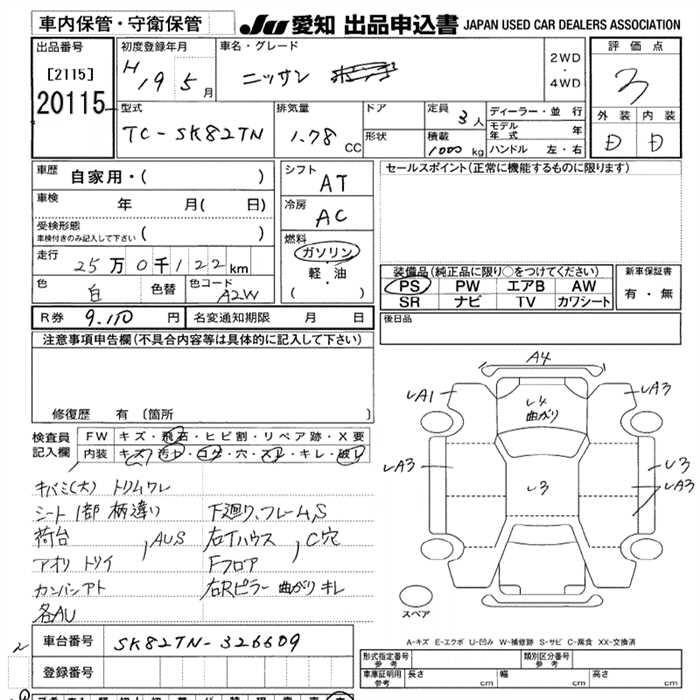 車内保管・守衛保管
JU 愛知 出品申込書 JAPAN USED CAR DEALERS ASSOCIATION
出品番号
[2115]
20115
初度登録年月
H19 5月
車名・グレード
ニッサン
2WD
・
4WD
評価点
3
外装 内装
D D
型式
TC-SK82TN
排気量
1.78 CC
ドア
形状
定員
3人
積載
1000 kg
ディーラー・並行
モデル年式 年
ハンドル 左・右
車歴
自家用・( )
車検
年 月( 日)
受検形態
車検付きのみ記入して下さい ( )
走行
25万0千122km
色
白
色替
色コード
A2W
シフト
AT
冷房
AC
燃料
ガソリン
・
軽・油
( )
セールスポイント(正常に機能するものに限ります)
装備品(純正品に限り○をつけてください)
PS PW エアB AW
SR ナビ TV カワシート
新車保証書
有・無
R券 9,110円
名変通知期限 月 日
後日品
注意事項申告欄(不具合内容等は具体的に記入して下さい)
修復歴 有 〔箇所 〕
検査員記入欄
FW キズ・飛石・ヒビ割・リペア跡・X要
内装 キズ・汚レ・コゲ・穴・スレ・キレ・破レ
キバミ(大) トリムワレ
シート1部 柄違い
荷台
アオリ トリイ , AUS
カンバンアト
各AU
下廻り、フレームS
右Tハウス
Fフロア , C穴
右Rピラー 曲がり キレ
A4
LA1
LA3
L4
曲がり
LA3
L3
L3
LA3
スペア
A-キズ E-エクボ U-凹み W-補修跡 S-サビ C-腐食 XX-交換済
車台番号
SK82TN-326609
登録番号
型式指定番号
参考
類別区分番号
参考
車庫証明用
参考
長さ cm
幅 cm
高さ cm